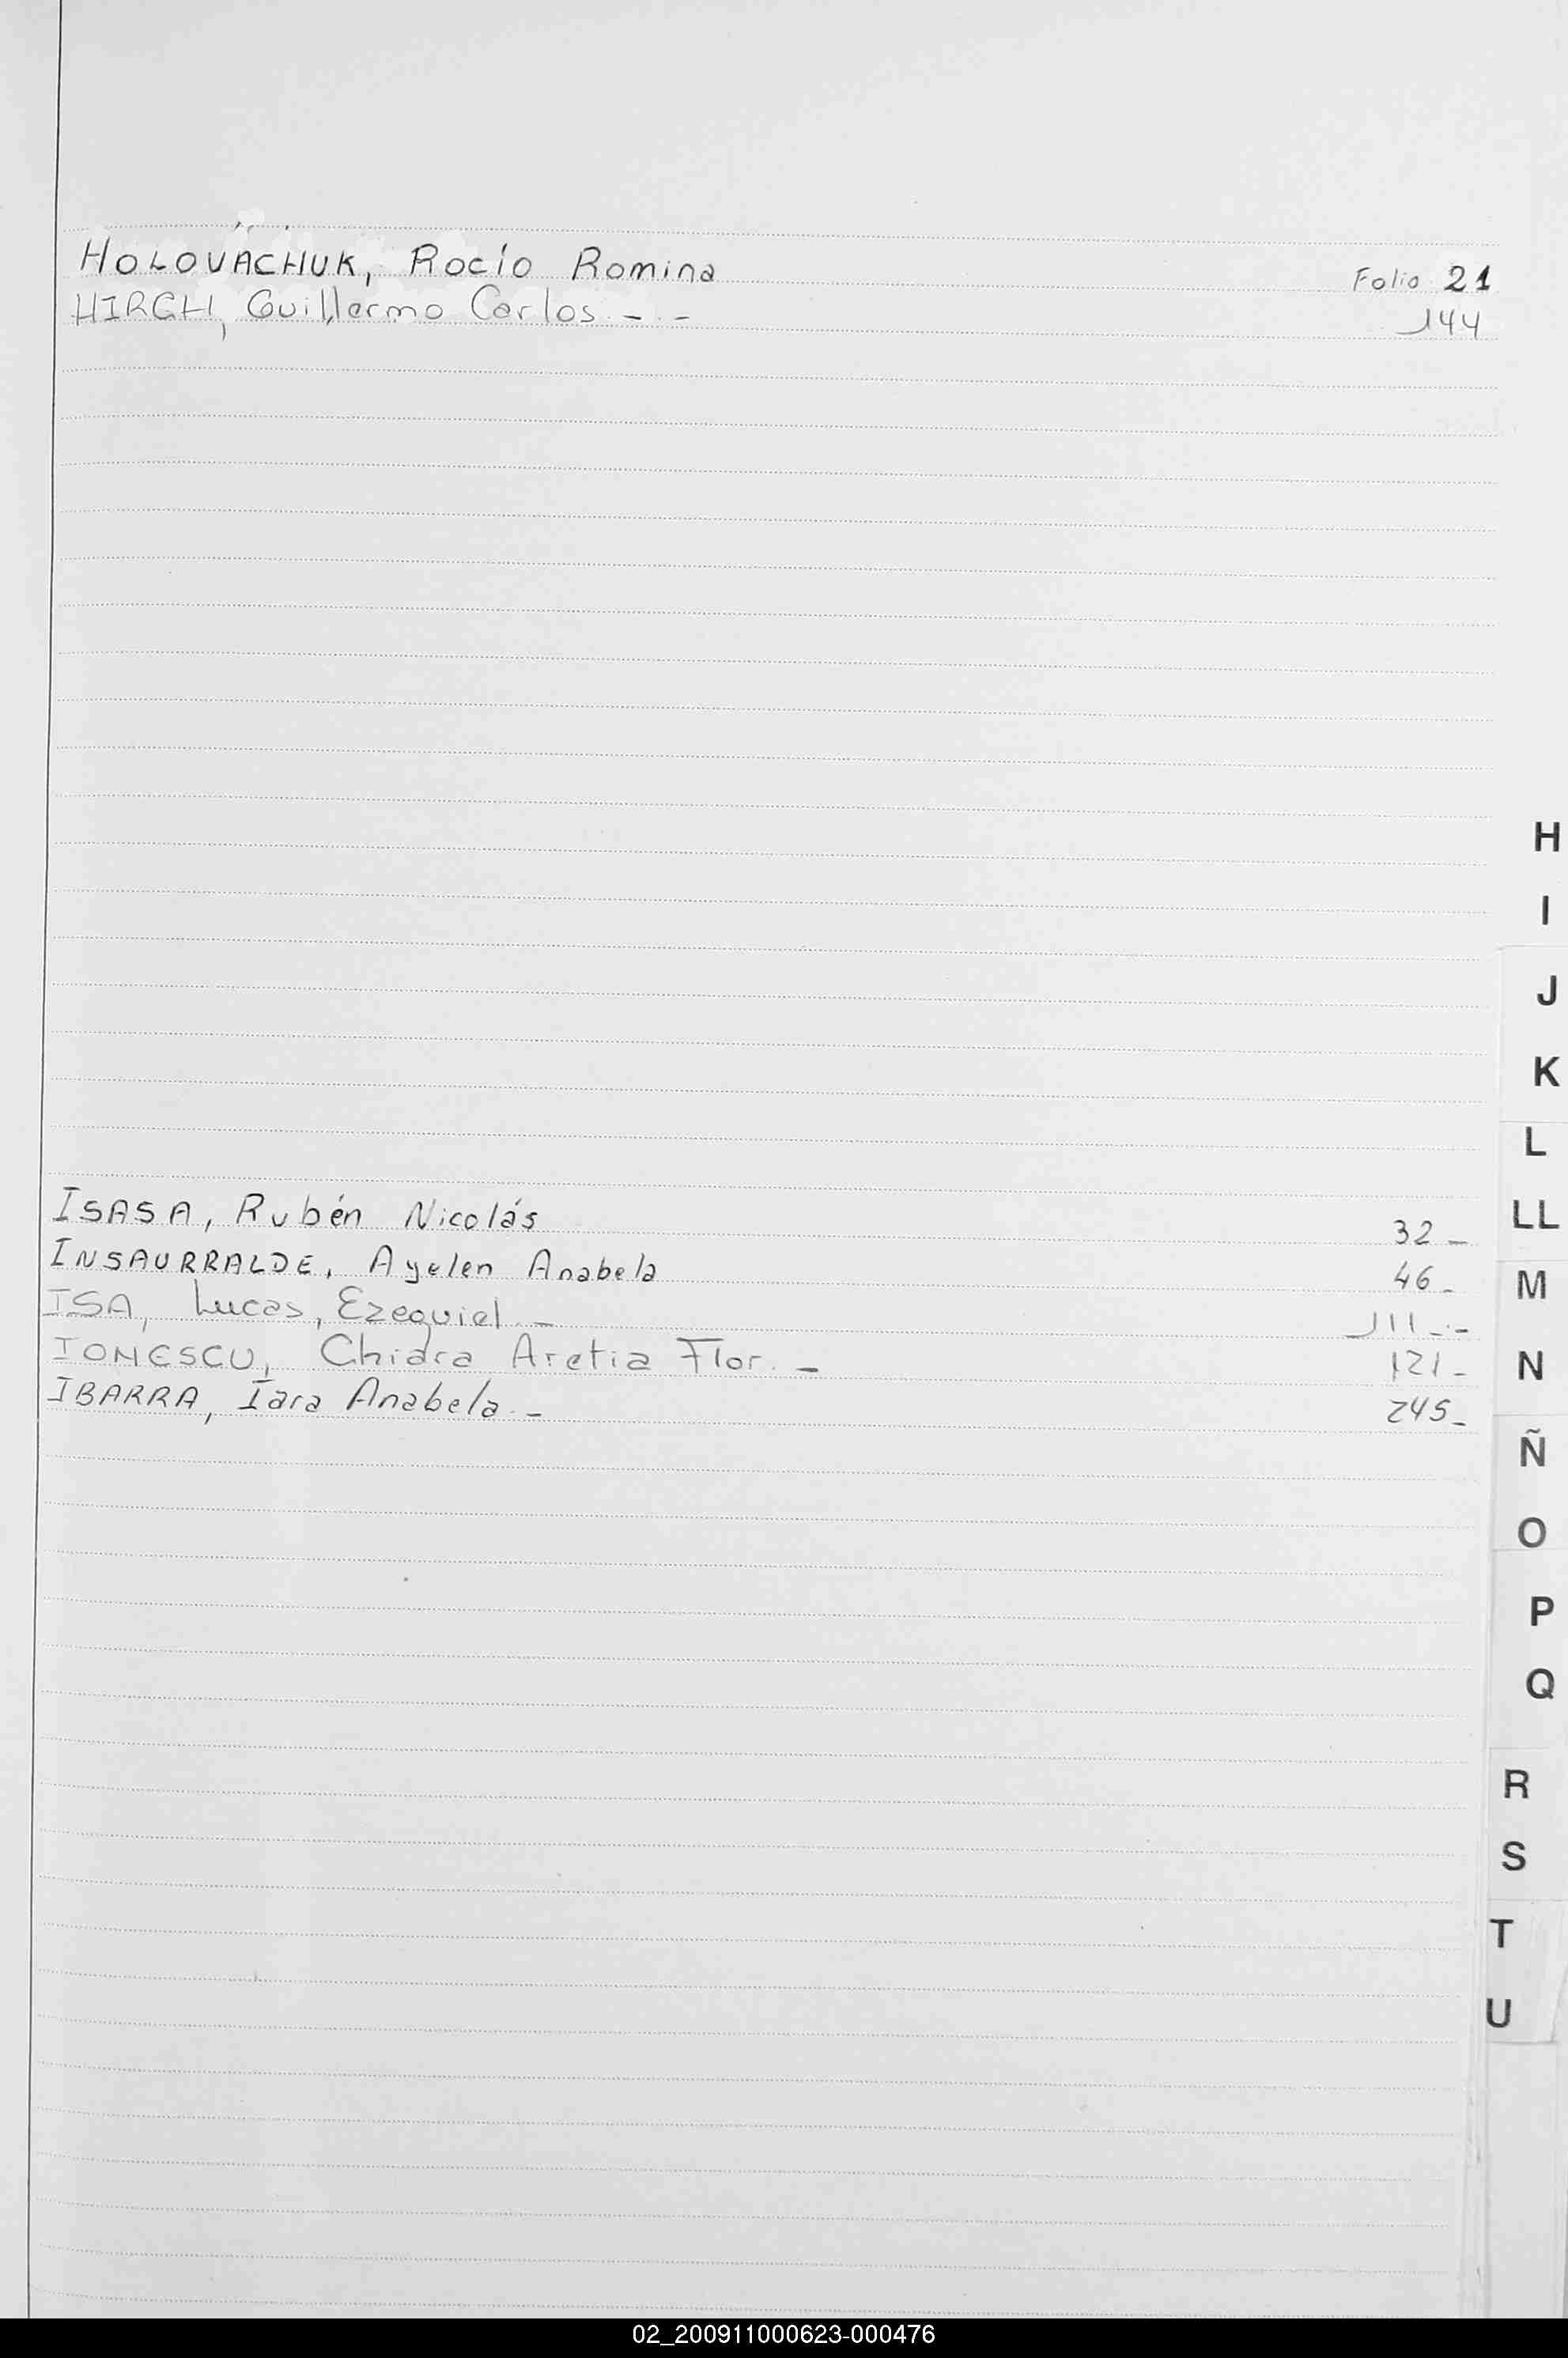 HOLOVACHUK, Rocío Romina Folio 21
HIRCH, Guillermo Carlos. - . - 144
H
I
J
K
L
ISASA, Rubén Nicolás 32 -
LL
INSAURRALDE, Ayelen Anabela 46 -
M
ISA, Lucas, Ezequiel. - 111 - . -
IONESCU, Chiara Aretia Flor. - 121 -
N
IBARRA, Iara Anabela. - 245 -
Ñ
O
P
Q
R
S
T
U
02_200911000623-000476